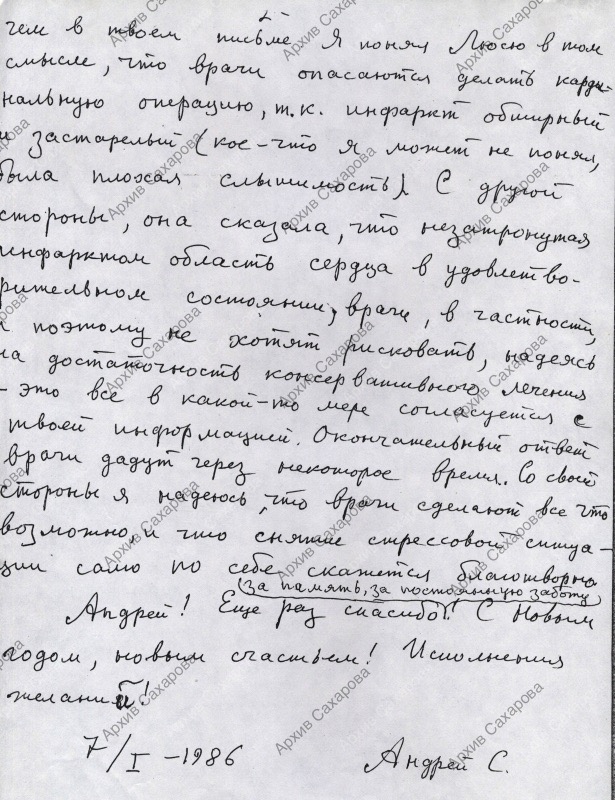 чем в твоем письме. Я понял Люсю в том
смысле, что врачи опасаются делать карди-
нальную операцию, т.к. инфаркт обширный
и застарелый (кое-что я может не понял,
была плохая слышимость). С другой
стороны, она сказала, что незатронутая
инфарктом область сердца в удовлетво-
рительном состоянии, врачи, в частности,
и поэтому не хотят рисковать, надеясь
на достаточность консервативного лечения
- это все в какой-то мере согласуется с
твоей информацией. Окончательный ответ
врачи дадут через некоторое время. Со своей
стороны я надеюсь, что врачи сделают все что
возможно, и что снятие стрессовой ситуа-
ции само по себе скажется благотворно
(за память, за постоянную заботу)
Андрей! Еще раз спасибо! С Новым
годом, новым счастьем! Исполнения
желаний!
7/I -1986 Андрей С.
Архив Сахарова